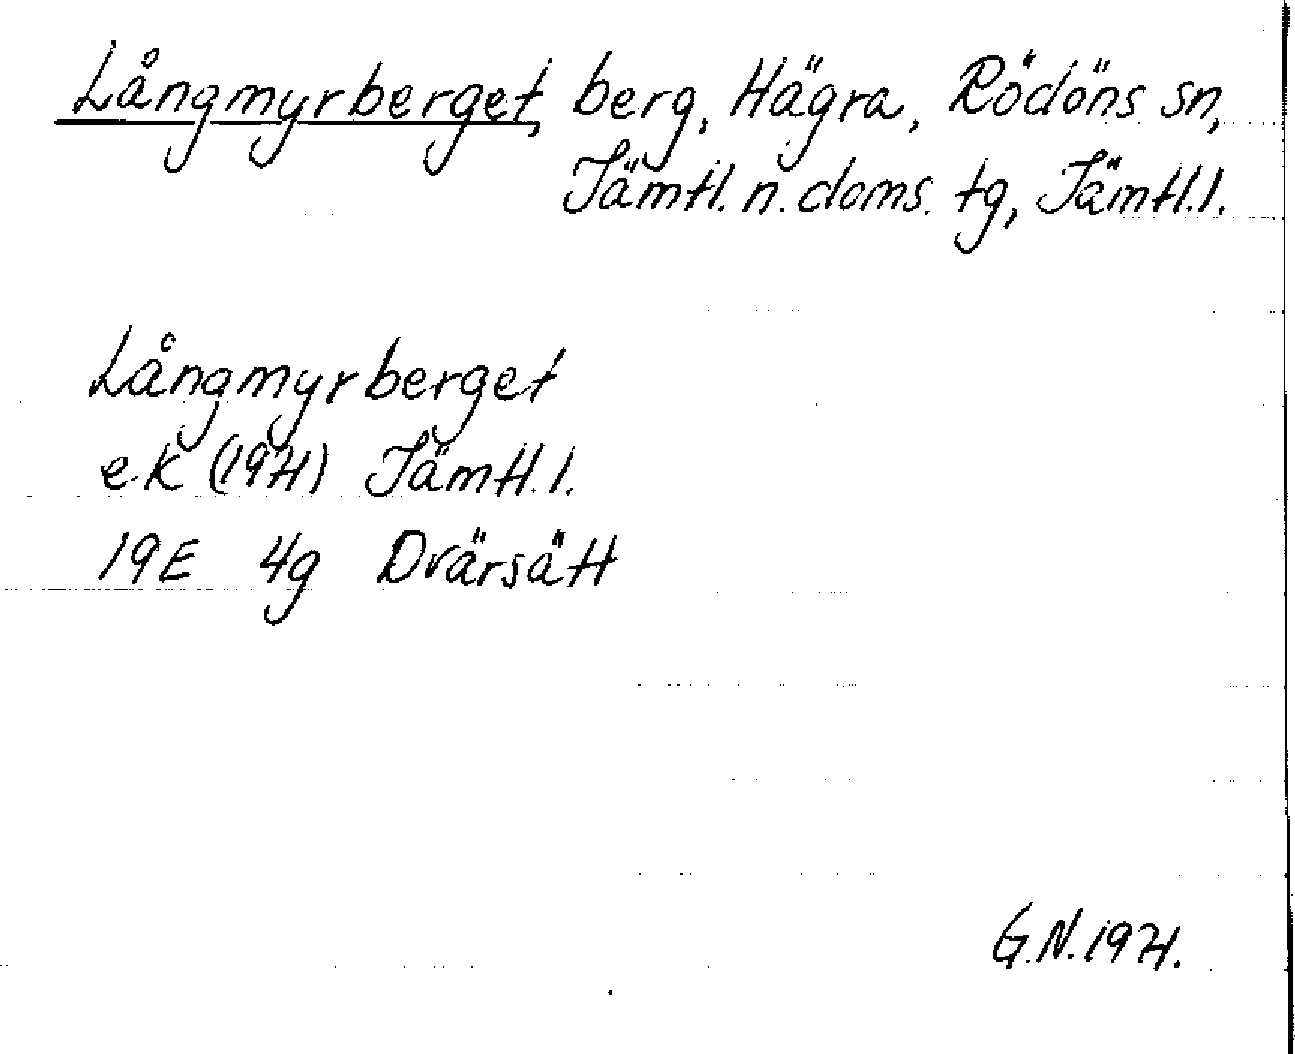 Långmyrberget, berg, Hägra, Rödöns sn,
Jämtl. n. doms. tg, Jämtl. l.
Långmyrberget
ek (1971) Jämtl. l.
19E 4g Dvärsätt
G.N. 1971.